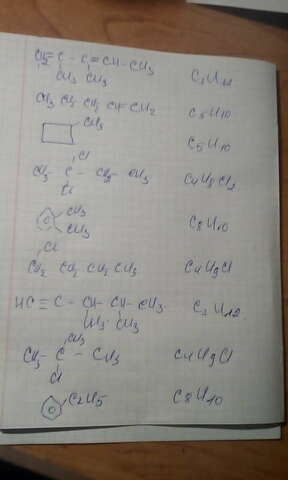 CH2=C - C=CH-CH3 C7H12
CH3 CH3
CH3 CH2 CH2 CH=CH2 C5H10
CH3 C5H10
Cl
CH3 - C - CH2 - CH3 C4H8Cl2
Cl
CH3 C8H10
CH3
Cl
CH2 CH2 CH2 CH3 C4H9Cl
HC≡C - CH - CH - CH3 C7H12
CH3 CH3
CH3
CH3 - C - CH3 C4H9Cl
Cl
C2H5 C8H10